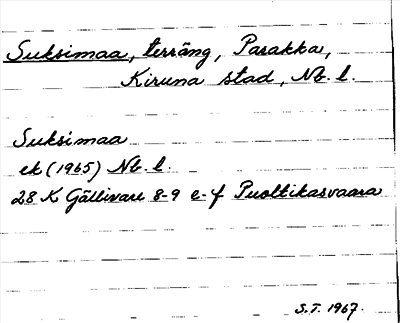 Suksimaa, terräng, Parakka,
Kiruna stad, Nb. l.
Suksimaa
ek (1965) Nb. l.
28 K Gällivare 8-9 e-f Puoltikasvaara
S.T. 1967.